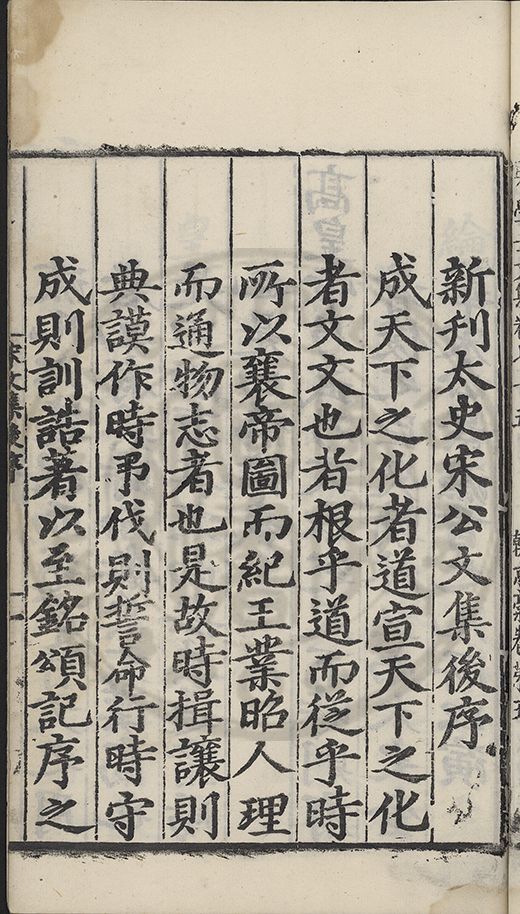 新刋太史宋公文集後序
成天下之化者道宣天下之化
者文文也者根乎道而從乎時
所以襄帝圖而紀王業昭人理
而通物志者也是故時揖讓則
典謨作時弔伐則誓命行時守
成則訓誥著以至銘頌記序之
宋文集後序